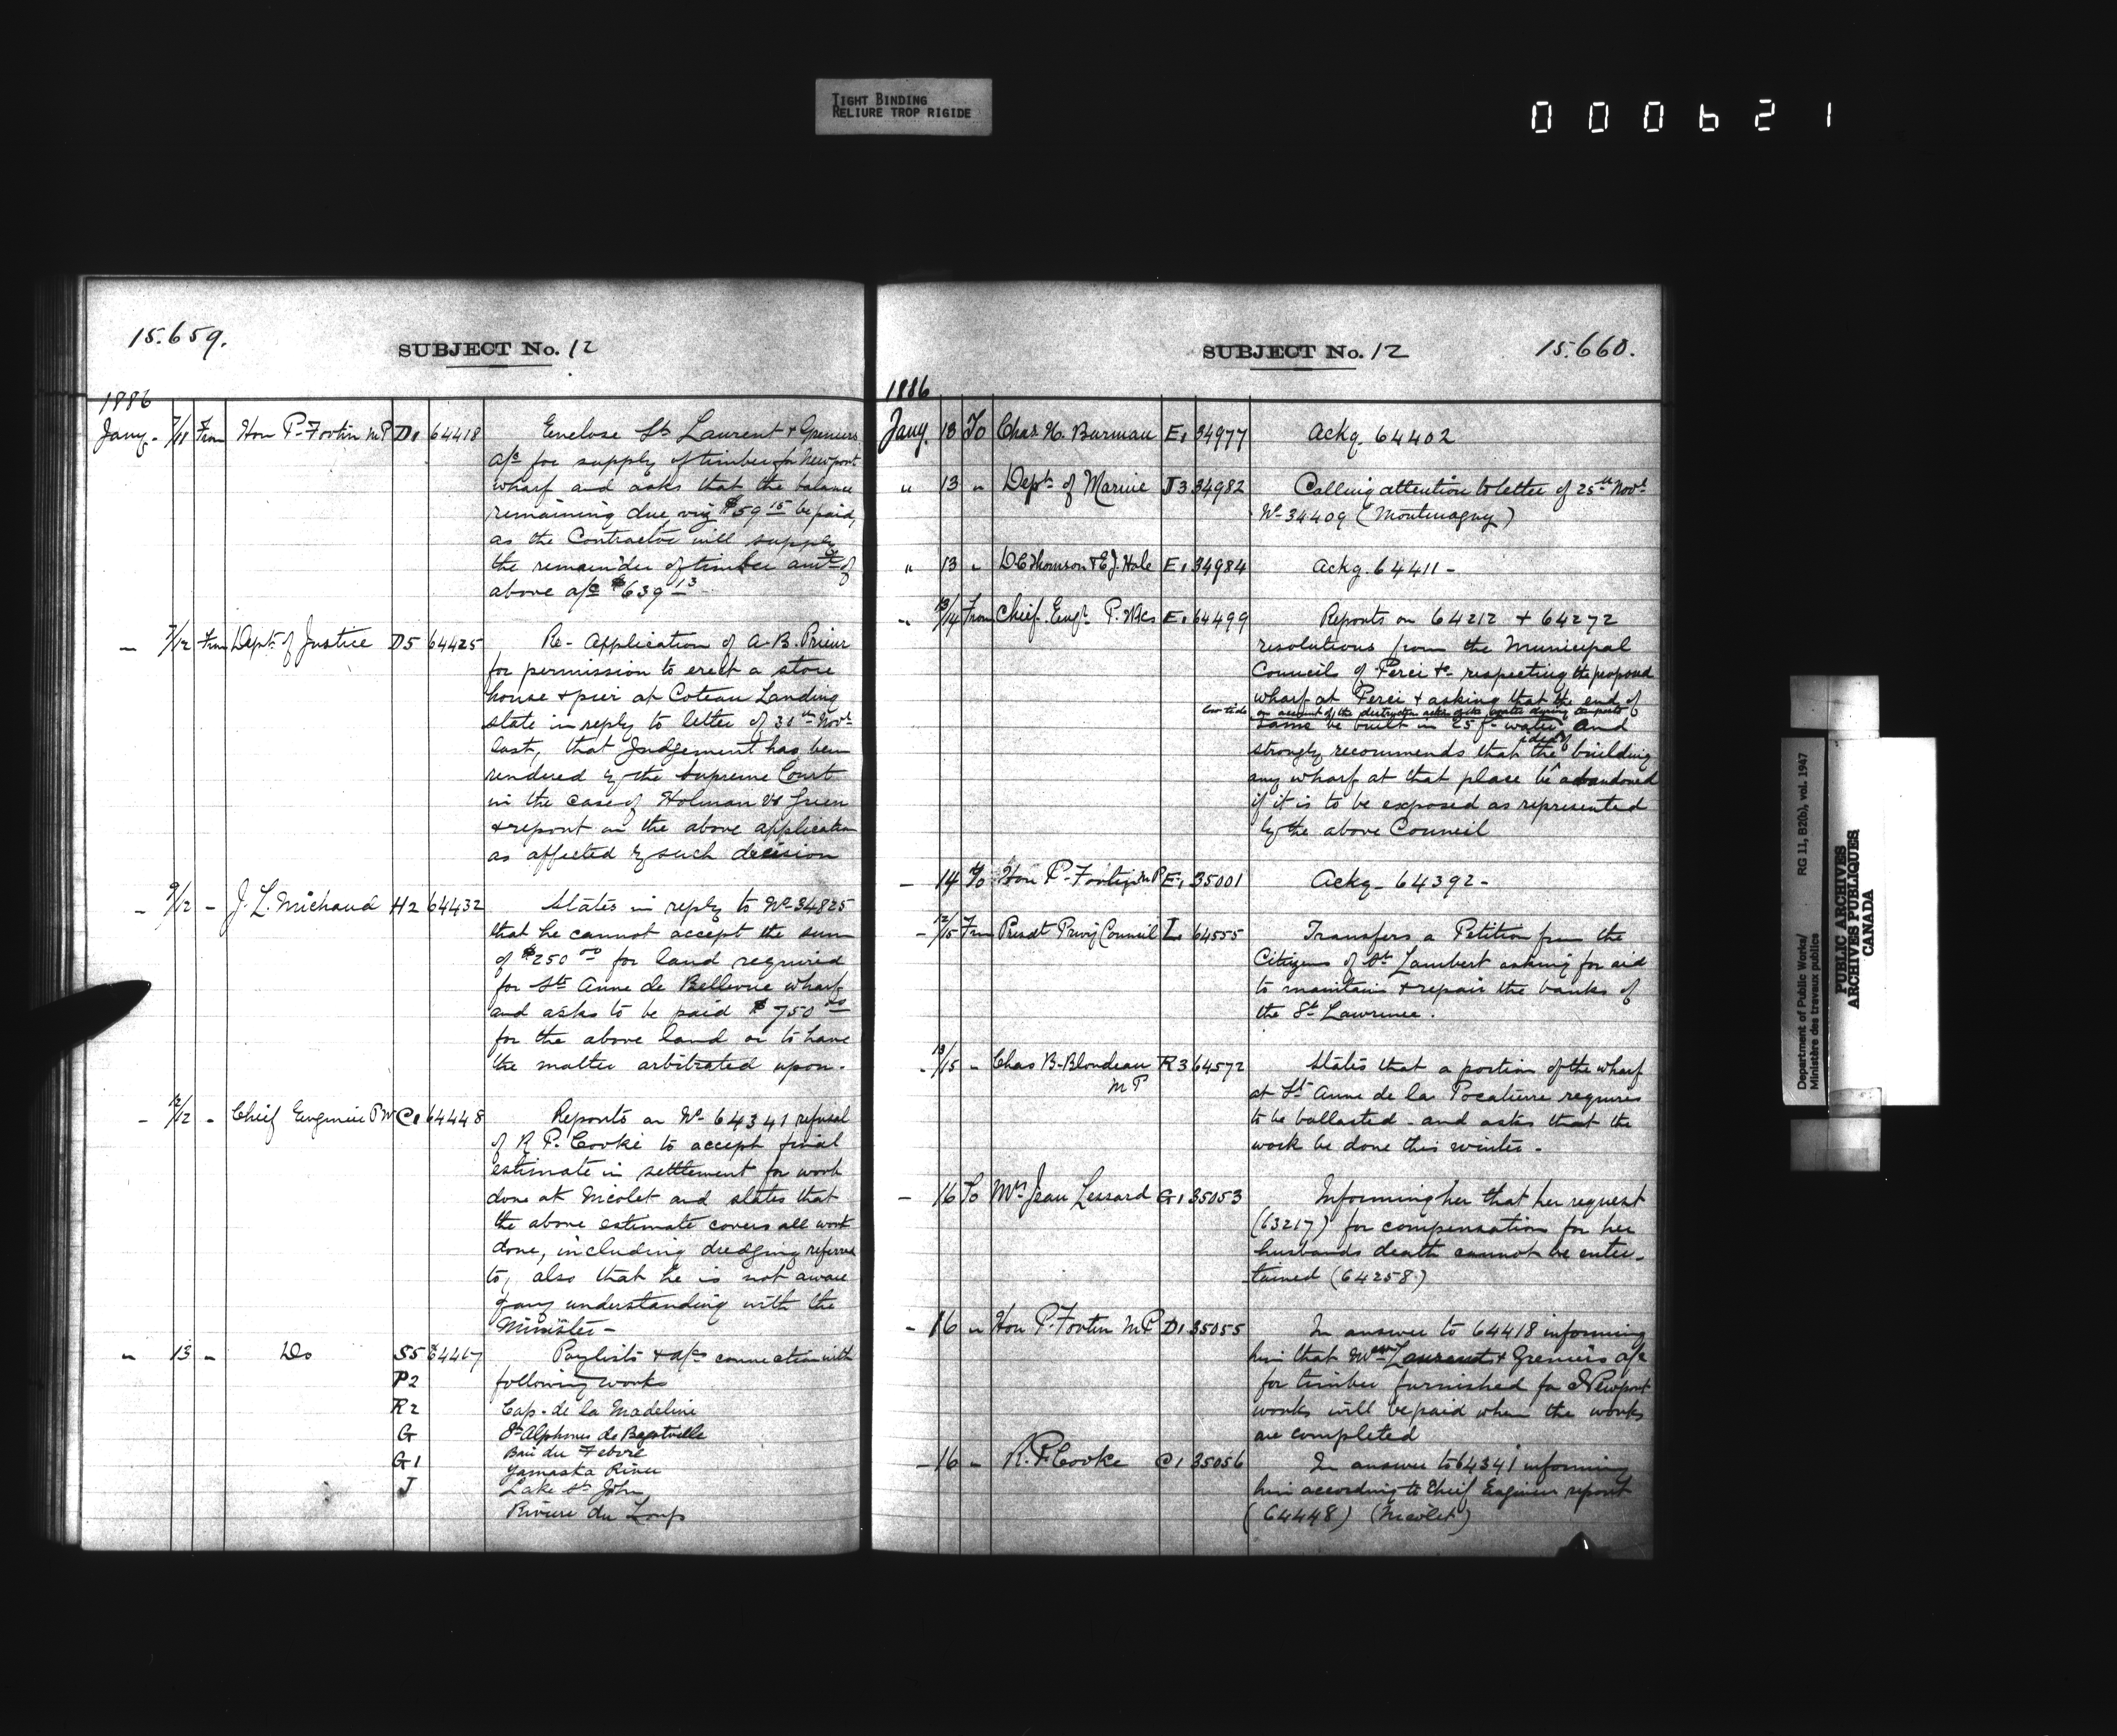 TIGHT BINDING
RELIURE TROP RIGIDE
000621
15.659.
SUBJECT No. 12
1886
Jany. 7/11 From Hon P. Fortin M P D1 64418 Enclose St Laurent & Greniers
a/c for supply of timber for Newport
wharf and asks that the balance
remaining due viz $59 15 be paid,
as the Contractor will supply
the remainder of timber amt of
above a/c $639 13
— 7/12 From Dept of Justice D5 64425 Re- Application of A. B. Prieur
for permission to erect a store
house & pier at Coteau Landing
state in reply to letter of 30th Novr
last, that Judgement has been
rendered by the Supreme Court
in the case of Holman vs Green
& report on the above application
as affected by such decision
— 9/12 - J. L. Michaud H2 64432 States in reply to No 34825
that he cannot accept the sum
of $250 00 for land required
for Ste Anne de Bellevue wharf
and asks to be paid $750 00
for the above land or to have
the matter arbitrated upon.
- 12/12 - Chief Engineer P W C1 64448 Reports on No 64341 refusal
of R. P. Cooke to accept final
estimate in settlement for work
done at Nicolet and states that
the above estimate covers all work
done, including dredging referred
to, also that he is not aware
of any understanding with the
Minister —
" 13 - Do S5 64467 Paylists & a/cs connection with
P2 following works
R2 Cap. de la Madeline
G St Alphonse de Bagotville
Baie du Febvre
G1 Yamaska River
J Lake St John
Riviere du Loup
SUBJECT No. 12
15.660.
1886
Jany. 13 To Chas H. Burman E1 34977 Ackg. 64402
" 13 " Dept of Marine J3 34982 Calling attention to letter of 25th Novr
No 34409 (Montmagny)
" 13 " D C Thomson & E J. Hale E1 34984 Ackg. 64411 -
" 13/14 From Chief Engr P. Wks E1 64499 Reports on 64212 & 64272
resolutions from the Municipal
Council of Percé &c respecting the proposed
wharf at Percé & asking that the end of
low tide on account of the destructive action of the water during tempests
same be built in 25 ft water and
strongly recommends that the idea of building
any wharf at that place be abandoned
if it is to be exposed as represented
by the above Council
— 14 To Hon P. Fortin M P E1 35001 Ackg - 64392 -
- 12/15 From Presdt Privy Council L 64555 Transfers a Petition from the
Citizens of St Lambert asking for aid
to maintain & repair the banks of
the St Lawrence.
- 13/15 - Chas B. Blondeau R3 64572 States that a portion of the wharf
M P
at St Anne de la Pocatiere requires
to be ballasted - and asks that the
work be done this winter -
— 16 To Mrs Jean Lessard G1 35053 Informing her that her request
(63217) for compensation for her
husbands death cannot be enter-
tained (64258)
- 16 " Hon P. Fortin M P D1 35055 In answer to 64418 informing
him that Messrs Laurent & Greniers a/c
for timber furnished for Newport
works will be paid when the works
are completed
- 16 - R. P. Cooke C1 35056 In answer to 64341 informing
him according to Chief Engineer report
(64448) (Nicolet)
Department of Public Works/
Ministère des travaux publics
RG 11, B2(b), vol. 1947
PUBLIC ARCHIVES
ARCHIVES PUBLIQUES
CANADA